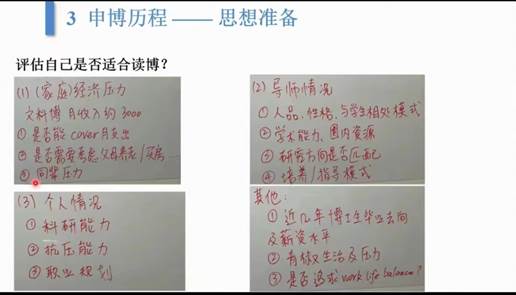 3 申博历程 —— 思想准备
评估自己是否适合读博?
(1) (家庭)经济压力
文科博 月收入约 3000
① 是否能cover月支出
② 是否需要考虑父母养老/买房…
③ 同辈压力
(2) 导师情况
① 人品、性格、与学生相处模式
② 学术能力、圈内资源
③ 研究方向是否匹配
④ 培养/指导模式
(3) 个人情况
① 科研能力
② 抗压能力
③ 职业规划
其他:
① 近几年博士生毕业去向
及薪资水平
② 青椒生活及压力
③ 是否追求work life balance?